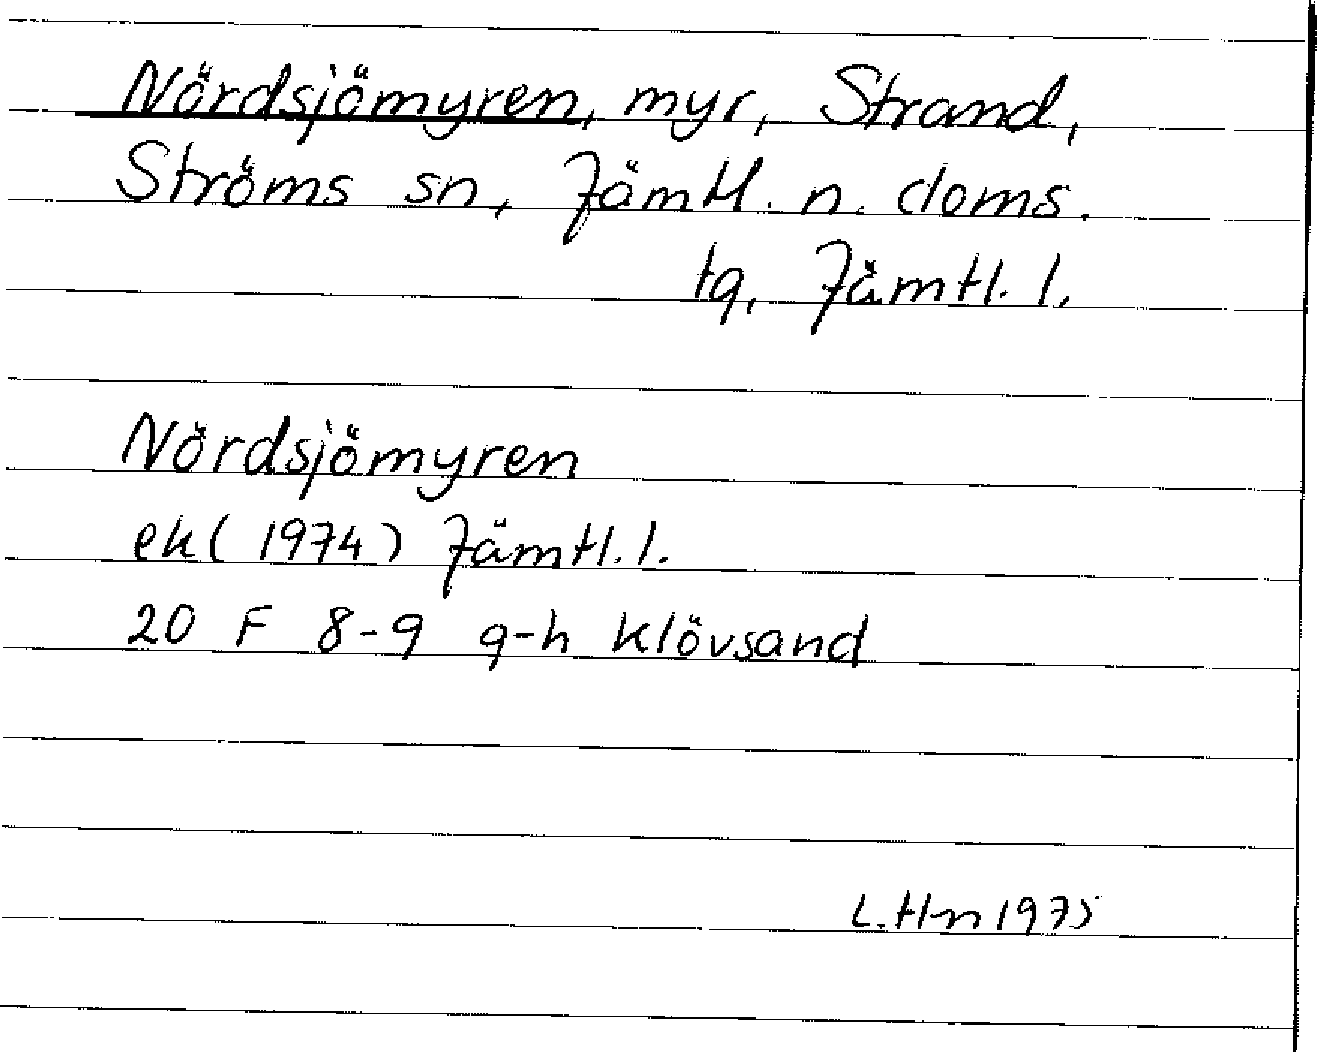 Nördsjömyren, myr, Strand,
Ströms sn, Jämtl. n. doms.
tg, Jämtl. l.
Nördsjömyren
ek (1974) Jämtl. l.
20 F 8-9 g-h Klövsand
L. Hn 1975